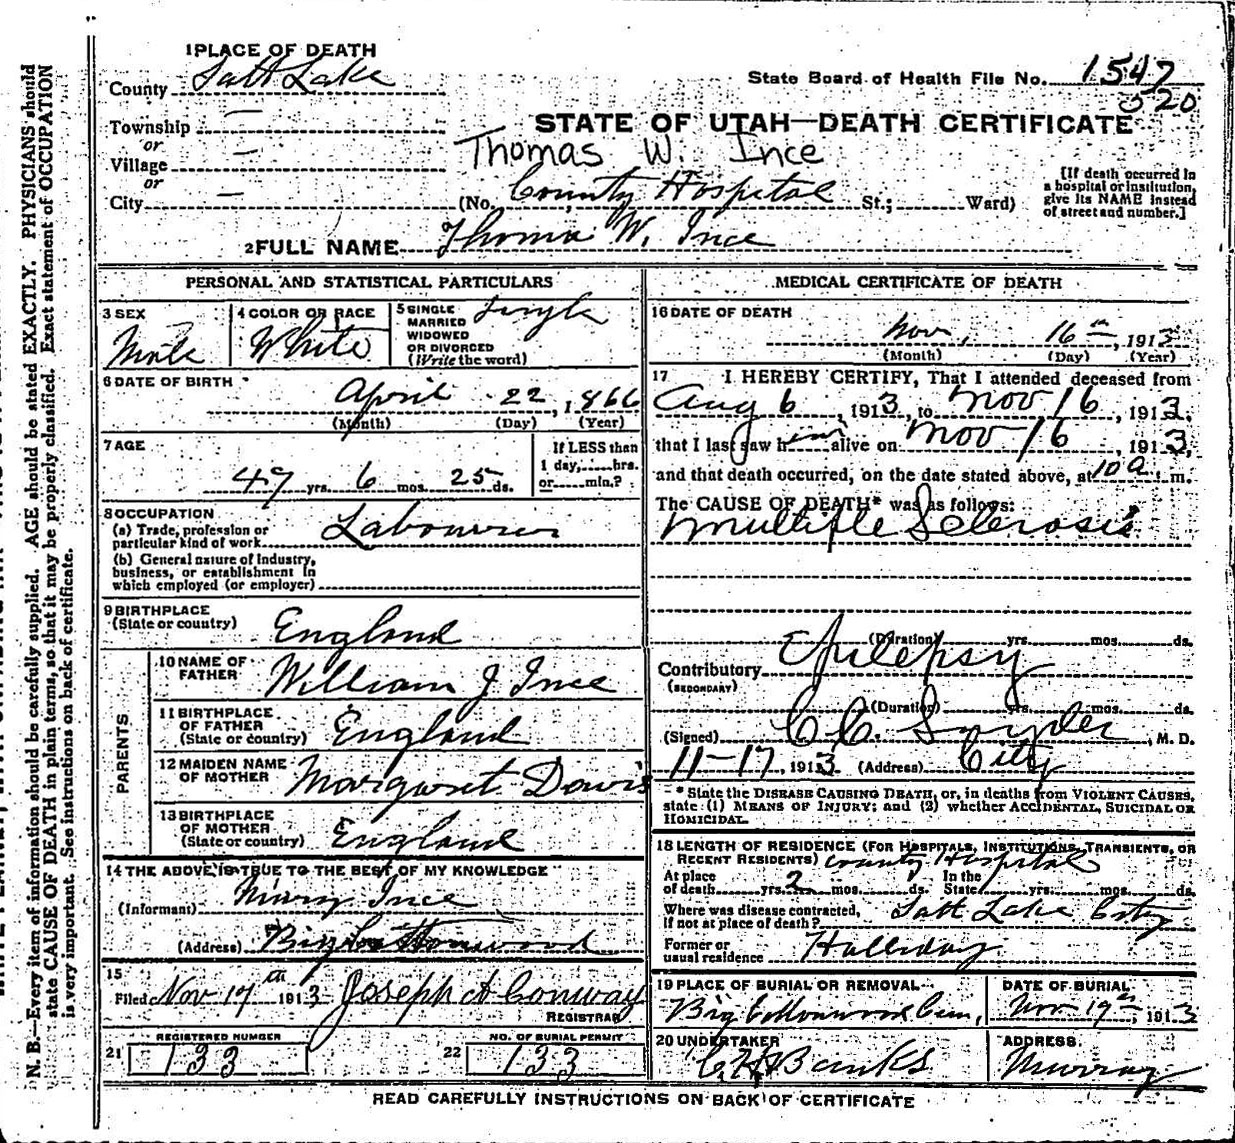 1 PLACE OF DEATH
County Salt Lake
State Board of Health File No. 1547
520
Township —
or
Village —
or
City —
STATE OF UTAH—DEATH CERTIFICATE
Thomas W. Ince
(No. County Hospital St.; Ward)
[If death occurred in
a hospital or institution,
give its NAME instead
of street and number.]
2 FULL NAME Thomas W. Ince
PERSONAL AND STATISTICAL PARTICULARS
3 SEX
Male
4 COLOR OR RACE
White
5 SINGLE
MARRIED
WIDOWED
OR DIVORCED
(Write the word)
Single
6 DATE OF BIRTH
April 22, 1866
(Month) (Day) (Year)
7 AGE
47 yrs. 6 mos. 25 ds.
If LESS than
1 day, hrs.
or min.?
8 OCCUPATION
(a) Trade, profession or
particular kind of work Labourer
(b) General nature of Industry,
business, or establishment in
which employed (or employer)
9 BIRTHPLACE
(State or country) England
PARENTS
10 NAME OF
FATHER William J Ince
11 BIRTHPLACE
OF FATHER
(State or country) England
12 MAIDEN NAME
OF MOTHER Margaret Davis
13 BIRTHPLACE
OF MOTHER
(State or country) England
14 THE ABOVE IS TRUE TO THE BEST OF MY KNOWLEDGE
(Informant) Mary Ince
(Address) Big Cottonwood
15
Filed Nov 17th 1913 Joseph A Conway
REGISTRAR
REGISTERED NUMBER
21 133
NO. OF BURIAL PERMIT
22 133
MEDICAL CERTIFICATE OF DEATH
16 DATE OF DEATH
Nov. 16th, 1913
(Month) (Day) (Year)
17 I HEREBY CERTIFY, That I attended deceased from
Aug 6, 1913, to Nov 16, 1913,
that I last saw him alive on Nov 16, 1913,
and that death occurred, on the date stated above, at 10 a. m.
The CAUSE OF DEATH* was as follows:
Multiple Sclerosis
(Duration) yrs. mos. ds.
Contributory Epilepsy
(SECONDARY)
(Duration) yrs. mos. ds.
(Signed) C.C. Snyder, M. D.
11-17, 1913 (Address) City
* State the DISEASE CAUSING DEATH, or, in deaths from VIOLENT CAUSES,
state (1) MEANS OF INJURY; and (2) whether ACCIDENTAL, SUICIDAL OR
HOMICIDAL.
18 LENGTH OF RESIDENCE (FOR HOSPITALS, INSTITUTIONS, TRANSIENTS, OR
RECENT RESIDENTS) County Hospital
At place In the
of death yrs. 2 mos. ds. State yrs. mos. ds.
Where was disease contracted,
if not at place of death? Salt Lake City
Former or
usual residence Halliday
19 PLACE OF BURIAL OR REMOVAL
Big Cottonwood Cem.,
DATE OF BURIAL
Nov 19th, 1913
20 UNDERTAKER
Banks
ADDRESS
Murray
READ CAREFULLY INSTRUCTIONS ON BACK OF CERTIFICATE
N. B.—Every item of information should be carefully supplied. AGE should be stated EXACTLY. PHYSICIANS should
state CAUSE OF DEATH in plain terms, so that it may be properly classified. Exact statement of OCCUPATION
is very important. See instructions on back of certificate.